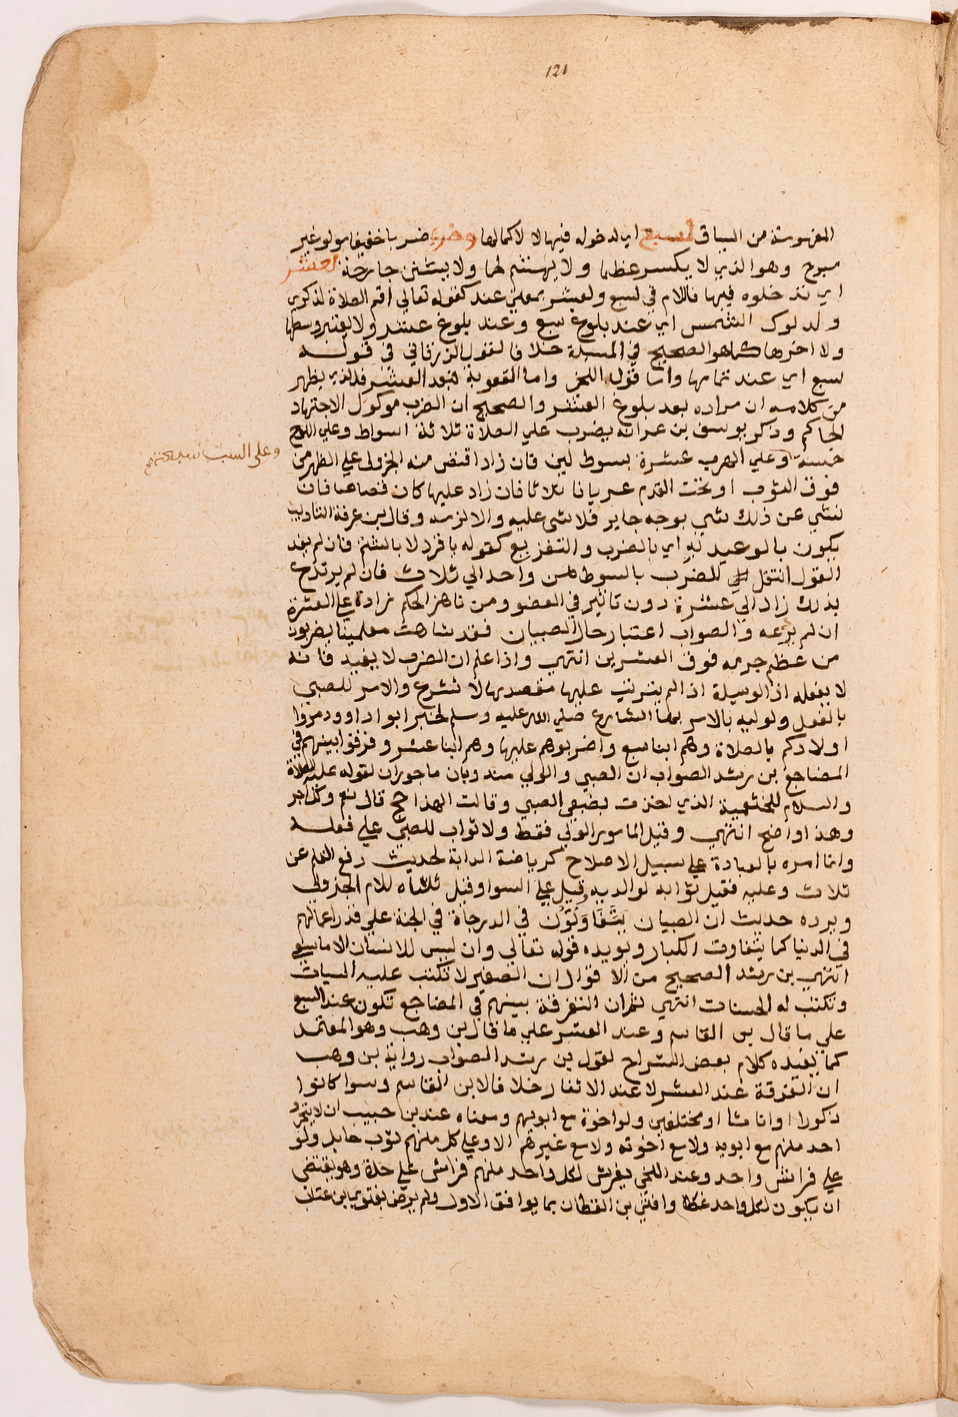 121
المفهومة من السياق لسبع اي لدخوله فيها لا لاكمالها وضرب ضربا خفيفا مولو غير
مبرح وهو الذي لا يكسر عظما ولا يهشم لحما ولا يشين جارحة لعشر
اي بدخلوه فيها فاللام في لسبع ولعشر بمعني عند كقوله تعالي اقم الصلاة لذكري
ولدلوك الشمس اي عند بلوغ سبع وعند بلوغ عشر ولا يعتبر وسطها
ولا اخرها كما هو الصحيح في المسيلة خلافا لقول الزرقاني في قوله
سبع اي عند تمامها واما قول اللخمي واما العقوبة فبعد العشر فالذي يظهر
من كلامه ان مراده بعد بلوغ العشر والصحيح ان الضرب موكول لاجتهاد
الحاكم وذكر يوسف بن عمر انه يضرب علي الصلاة ثلاثة اسواط وعلي اللوح
خمسة وعلي الهرب عشرة بسوط لين فان زاد اقتص منه الجزولي علي الظهر من
وعلي السب سبعة صح
فوق الثوب او تحت القدم عريانا ثلاثا فان زاد عليها كان قصاصا فان
نشي عن ذلك شي بوجه جايز فلا شي عليه والا لزمه وقال بن عرفة التاديب
يكون بالوعيد به اي بالضرب والتقريع كقوله يا قرد لا بالشتم فان لم يفد
القول انتقل للضرب بالسوط من واحد الي ثلاث فان لم يرتدع
بذلك زاد الي عشرة دون تاثير في العضو ومن ناهز الحلم زاده علي العشرة
ان لم يزعه والصواب اعتبار حال الصبيان فقد شاهدت معلمينا يضربون
من عظم جرمه فوق العشرين انتهي واذا علم ان الضرب لا يفيد فانه
لا يفعله اذ الوسيلة اذا لم يترتب عليها مقصدها لا تشرع والامر للصبي
بالفعل ولوليه بالامر بها الشارع صلي الله عليه وسلم لخبر ابو داوود مروا
اولادكم بالصلاة وهم ابنا سبع واضربوهم عليها وهم ابنا عشر وفرقوا بينهم في
المضاجع بن رشد الصواب ان الصبي والولي مندوبان ماجوران لقوله عليه الصلاة
والسلام للخثعمية الذي اخذت بضبعي الصبي وقالت الهذا حج قال نعم ولك اجر
وهذا واضح انتهي وقيل المامور الولي فقط ولا ثواب للصبي علي فعله
وانما امره بالعبادة علي سبيل الاصلاح كرياضة الدابة لحديث رفع القلم عن
ثلاث وعليه فقيل ثوابه لوالديه قيل علي السوا وقيل ثلثاه للام الجزولي
ويرده حديث ان الصبيان يتفاوتون في الدرجاة في الجنة علي قدر اعمالهم
في الدنيا كما يتفاوت الكبار ويويده قوله تعالي وان ليس للانسان الا ما سعي
انتهي بن رشد الصحيح من الاقوال ان الصغير لا تكتب عليه السيات
وتكتب له الحسنات انتهي ثم ان التفرقة بينهم في المضاجع تكون عند السبع
علي ما قال بن القاسم وعند العشر علي ما قال بن وهب وهو المعتمد
كما يفيده كلام بعض الشراح لقول بن رشد الصواب رواية بن وهب
ان التفرقة عند العشر لا عند الاثغار خلافا لابن القاسم وسوا كانوا
ذكورا اواناثا او مختلفين ولو اخوة مع ابويهم ومعناه عند بن حبيب ان لا يتجرد
احد منهم مع ابويه ولا مع اخوته ولا مع غيرهم الا وعلي كل منهم ثوب حايل ولو
علي فراش واحد وعند اللخمي يفرش لكل واحد منهم فراش علي حدة وهو يقتضي
ان يكون لكل واحد غطا وافتي بن القطان بما يوافق الاول ولم يرض بفتوي بن عتاب